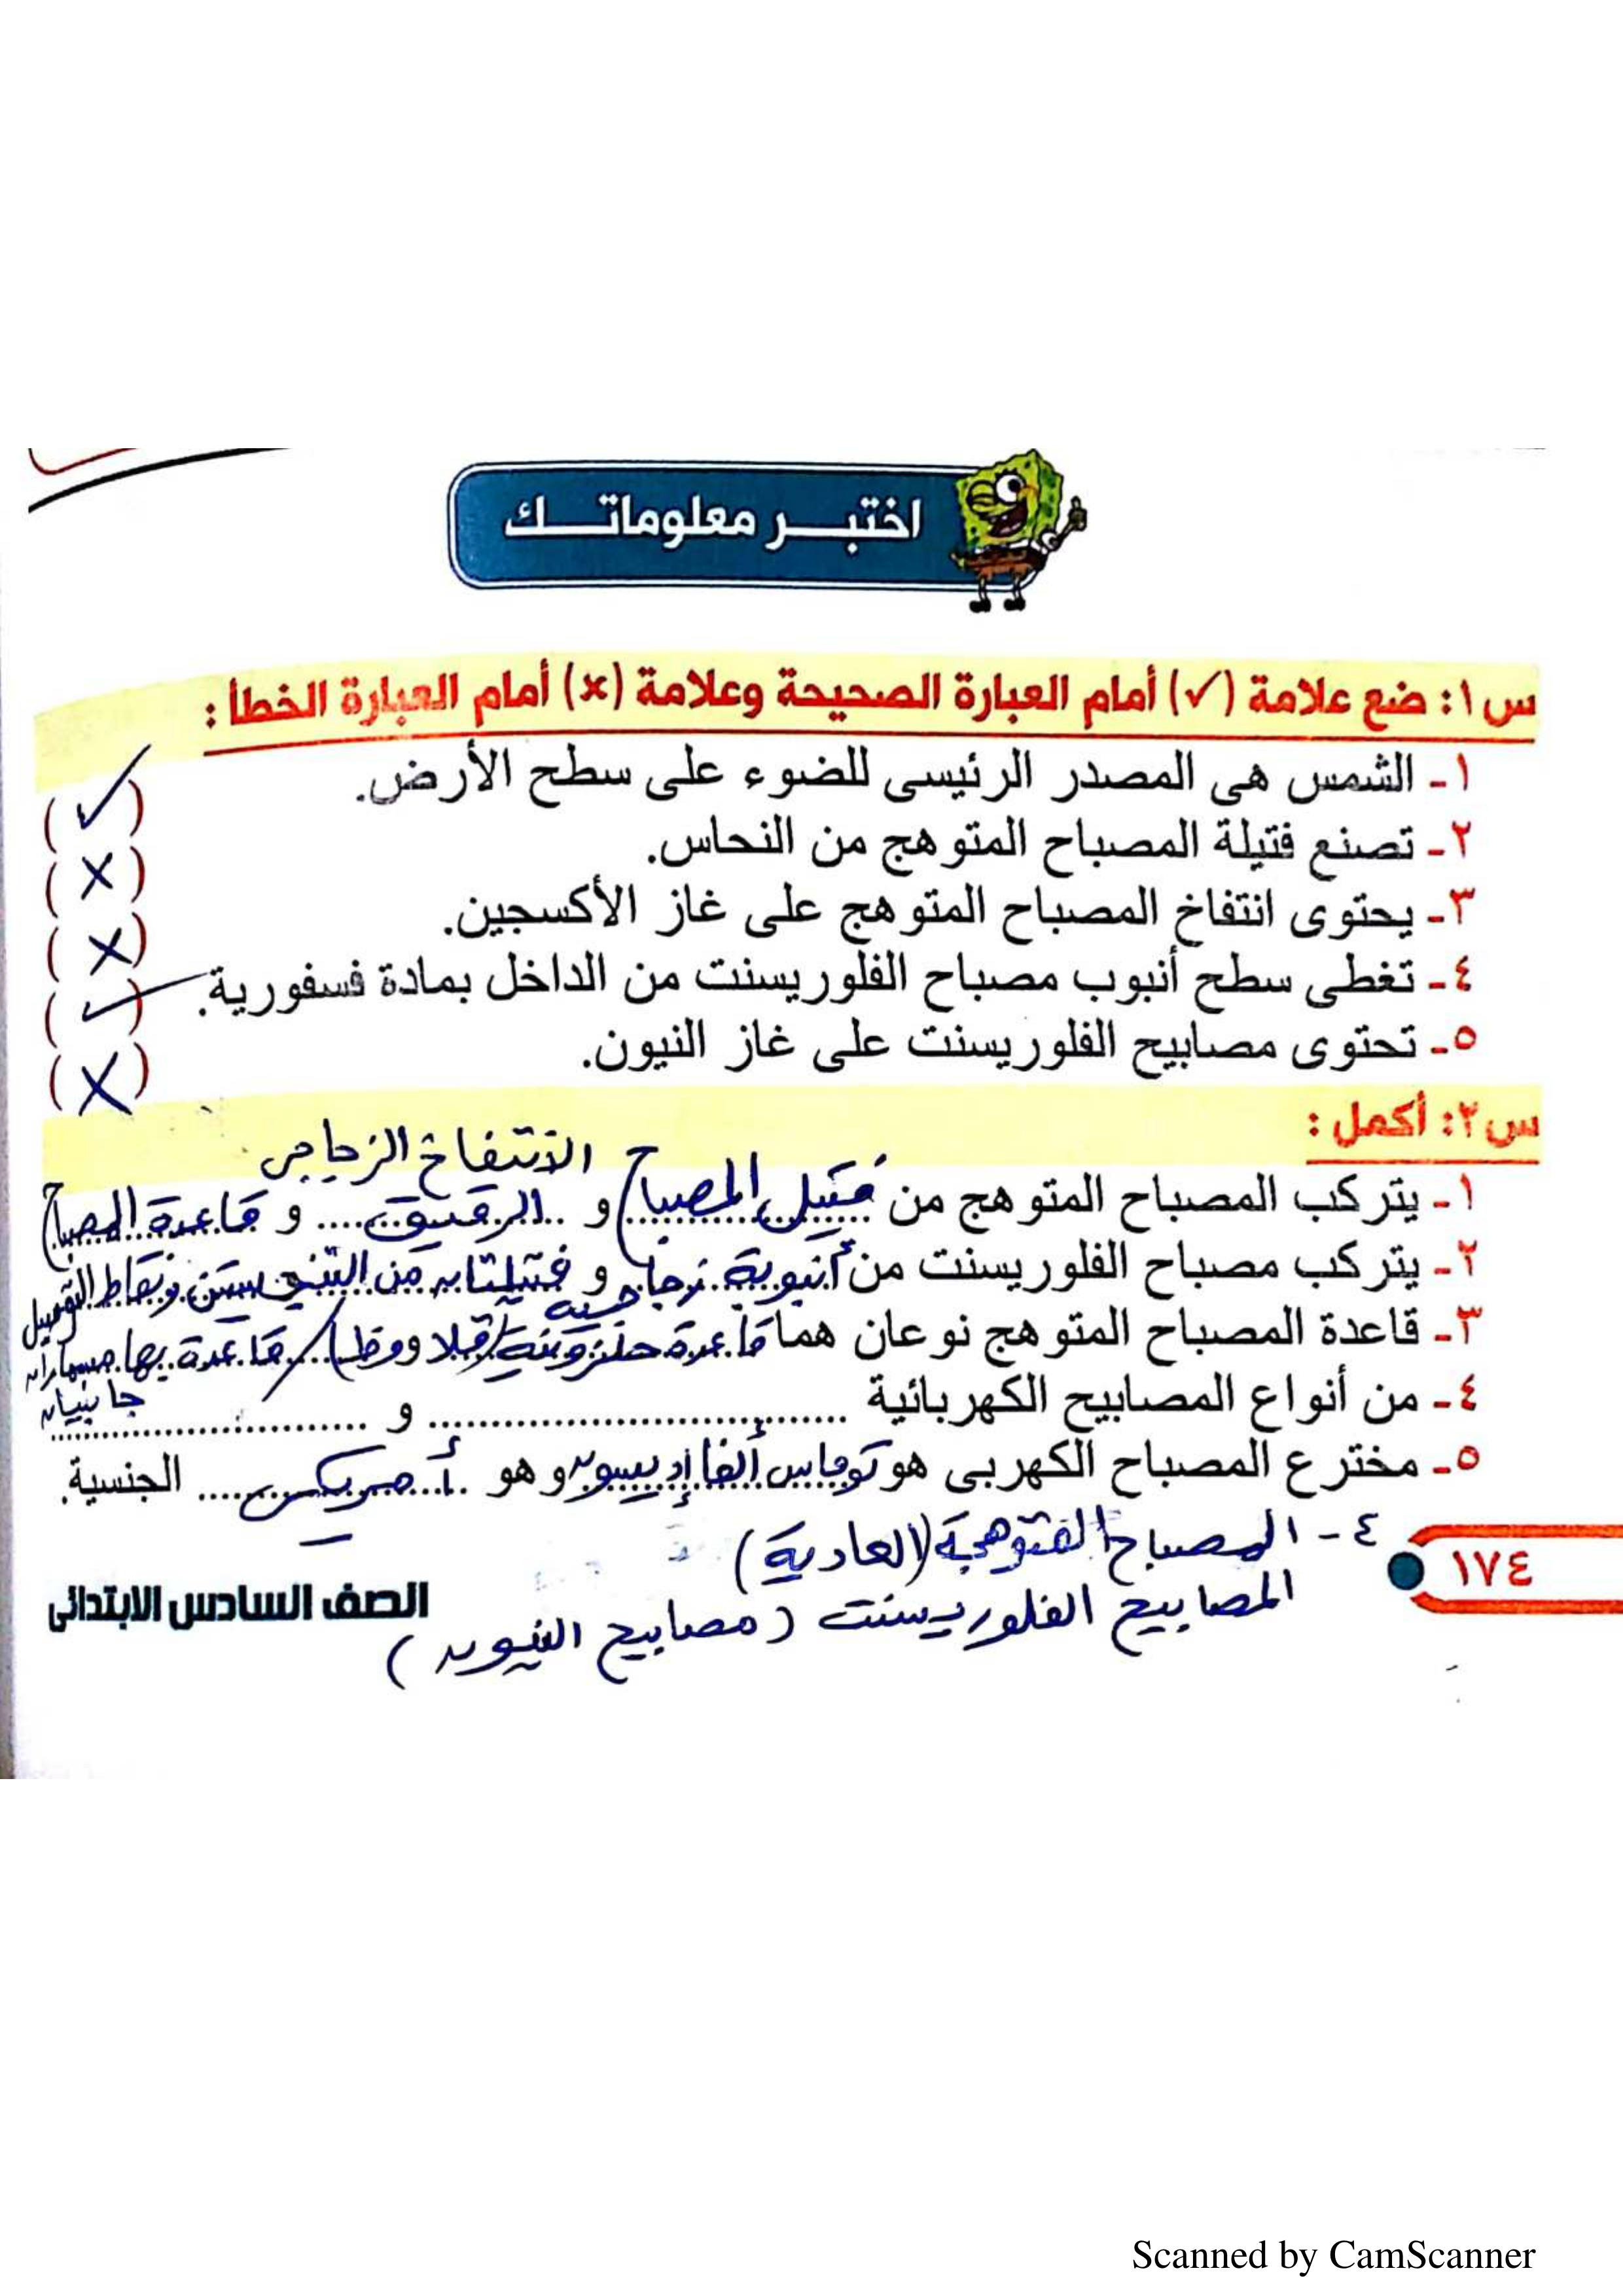 اختبر معلوماتك
س١: ضع علامة (✓) أمام العبارة الصحيحة وعلامة (×) أمام العبارة الخطأ :
١- الشمس هى المصدر الرئيسى للضوء على سطح الأرض. (✓)
٢- تصنع فتيلة المصباح المتوهج من النحاس. (×)
٣- يحتوى انتفاخ المصباح المتوهج على غاز الأكسجين. (×)
٤- تغطى سطح أنبوب مصباح الفلوريسنت من الداخل بمادة فسفورية. (✓)
٥- تحتوى مصابيح الفلوريسنت على غاز النيون. (×)
س٢: أكمل :
الانتفاخ الزجاجى
١- يتركب المصباح المتوهج من فتيل المصباح و الرقيق و قاعدة المصباح
٢- يتركب مصباح الفلوريسنت من أنبوبة زجاجية و فتيلتان من التنجستن ونقاط التوصيل
٣- قاعدة المصباح المتوهج نوعان هما قاعدة حلزونية (قلاووظ) / قاعدة بها مسماران
جانبيان
٤- من أنواع المصابيح الكهربائية .......... و ..........
٥- مخترع المصباح الكهربى هو توماس ألفا إديسون و هو أمريكى الجنسية.
٤- المصباح المتوهجة (العادية)
المصابيح الفلوريسنت (مصابيح النيون)
١٧٤
الصف السادس الابتدائى
Scanned by CamScanner